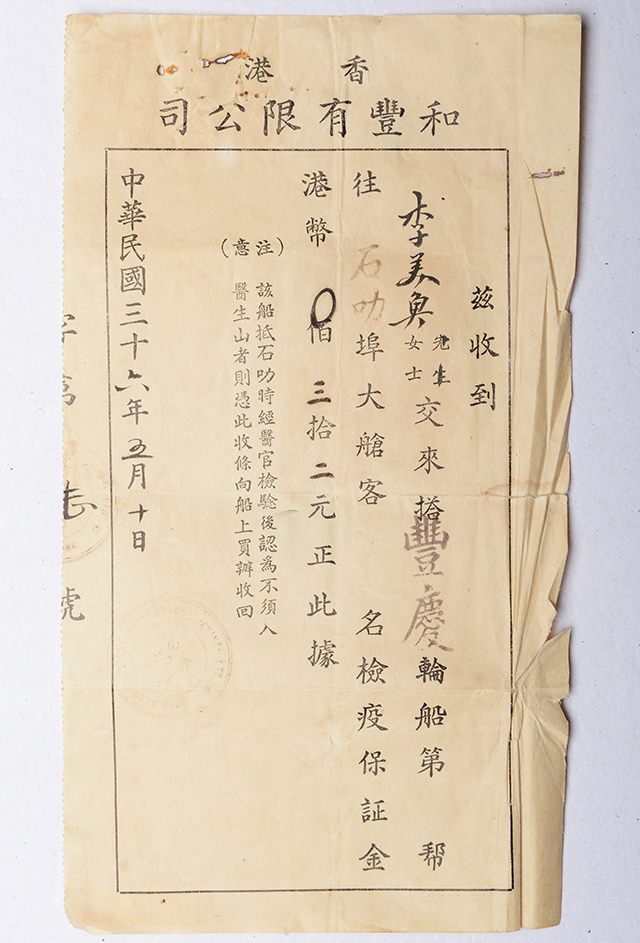 香港
和豐有限公司
茲收到
李美奐先生女士交來搭豐慶輪船第 帮
往石叻埠大艙客 名檢疫保証金
港幣0佰三拾二元正此據
(注意)
該船抵石叻時經醫官檢驗後認為不須入
醫生山者則憑此收條向船上買辦收回
中華民國三十六年五月十日
字第 號